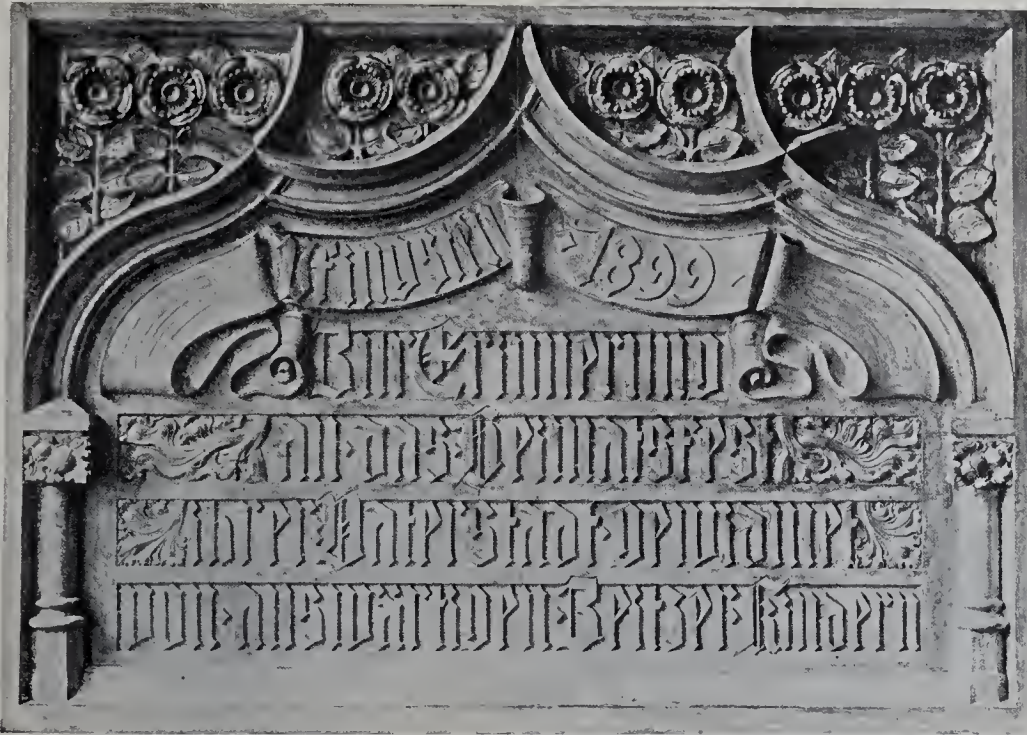 1899
Zur Erinnerung
an das Heimatsfest
ihrer Vaterstadt gewidmet
von auswärtigen Zeitzer Kindern